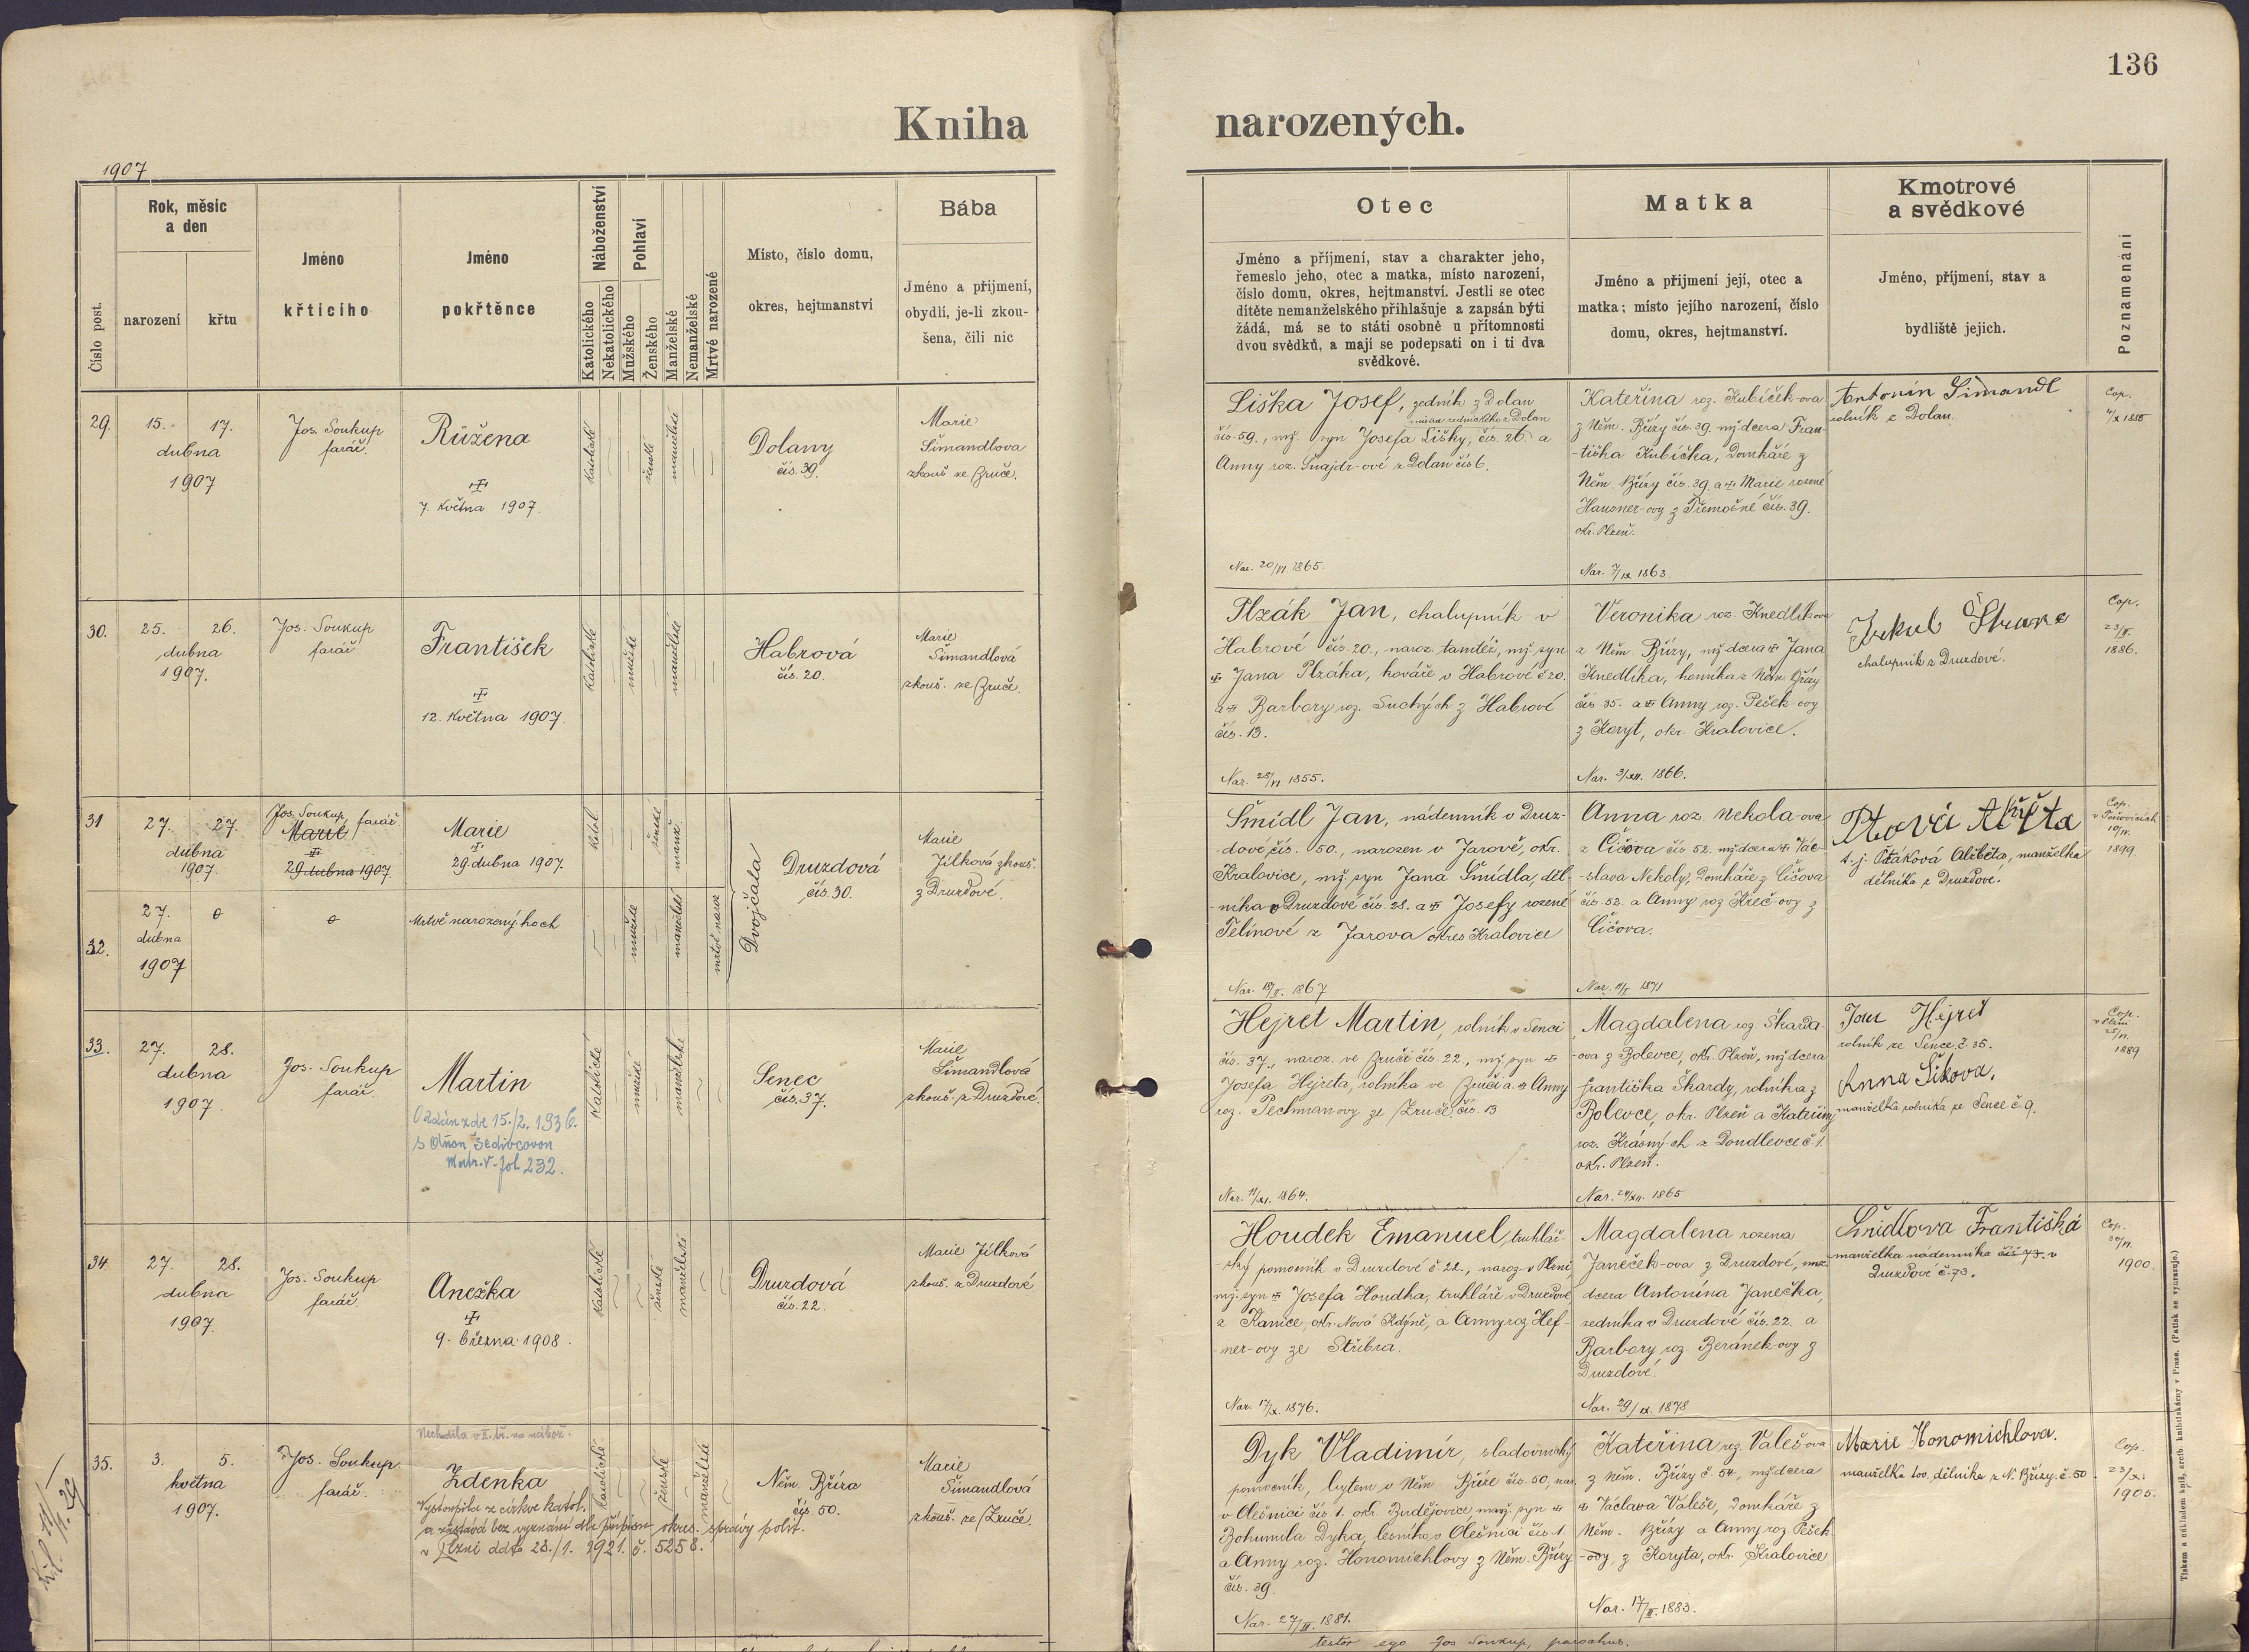 136
Kniha narozených.
1907
Číslo post.
Rok, měsíc
a den
narození
křtu
Jméno
křticího
Jméno
pokřtěnce
Náboženství
Katolického
Nekatolického
Pohlaví
Mužského
Ženského
Manželské
Nemanželské
Mrtvé narozené
Místo, číslo domu,
okres, hejtmanství
Bába
Jméno a přijmení,
obydlí, je-li zkou-
šena, čili nic
Otec
Jméno a příjmení, stav a charakter jeho,
řemeslo jeho, otec a matka, místo narození,
číslo domu, okres, hejtmanství. Jestli se otec
dítěte nemanželského přihlašuje a zapsán býti
žádá, má se to státi osobně u přítomnosti
dvou svědků, a mají se podepsati on i ti dva
svědkové.
Matka
Jméno a přijmení její, otec a
matka; místo jejího narození, číslo
domu, okres, hejtmanství.
Kmotrové
a svědkové
Jméno, příjmení, stav a
bydliště jejich.
Poznamenání
29.
15. 17.
dubna
1907
Jos. Soukup
farář.
Růžena
7. května 1907.
katolické
ženské
manželské
Dolany
čís. 39.
Marie
Šimandlova
zkouš. ze Zruče.
Liška Josef, zedník z Dolan
čís. 59., mž. syn Josefa Lišky, čís. 26. a
Anny roz. Šnajdr-ové z Dolan čís 6.
Nar. 20/VI 1865.
Kateřina roz. Kubíček-ova
z Něm. Břízy čís. 39. mž dcera Fran-
-tiška Kubíčka, domkáře z
Něm. Břízy čís. 39. a Marie rozené
Hausner-ovy z Třemošné čís. 39.
okr. Plzeň.
Nar. 7/IX 1863.
Antonín Šimandl
rolník z Dolan.
Cop.
30.
25. 26.
dubna
1907.
Jos. Soukup
farář
František
12. května 1907.
katolické
mužské
manželské
Habrová
čís. 20.
Marie
Šimandlová
zkouš. ze Zruče.
Plzák Jan, chalupník v
Habrové čís. 20., naroz. tamtéž, mž syn
Jana Plzáka, kováře v Habrové č 20.
a Barbory roz. Suchých z Habrové
čís. 13.
Nar. 28/VI 1855.
Veronika roz. Knedlík-ova
z Něm Břízy, mž dcera Jana
Knedlíka, horníka z Něm. Břízy
čís 35. a Anny roz. Pešek-ovy
z Koryt, okr. Kralovice.
Nar. 3/XII. 1866.
chalupník z Druzdové.
Cop.
23/II.
1886.
31
27. 27.
dubna
1907.
Jos. Soukup, farář.
Marie
29 dubna 1907.
Marie
29 dubna 1907.
katol
ženské
manž.
Dvojčata
Druzdová
čís. 30.
Marie
Jílková zkouš.
z Druzdové.
32.
27.
dubna
1907
Mrtvě narozený hoch
mužské
manželské
mrtvě naroz
Šmídl Jan, nádenník v Druz-
-dové, čís. 50., narozen v Jarově, okr.
Kralovice, mž. syn Jana Šmídla, děl-
-níka v Druzdové čís. 28. a Josefy rozené
Telínové z Jarova okres Kralovice
Nar. 18/II. 1867
Anna roz. Nekola-ova
z Čičova čís 52. mž dcera Vác-
-slava Nekoly, domkáře z Čičova
čís. 52. a Anny roz Křeč-ovy z
Čičova.
1871
t. j. Ptáková Alžběta, manželka
dělníka z Druzdové.
Cop.
1899.
33.
27. 28.
dubna
1907.
Jos. Soukup
farář.
Martin
Oddán zde 15./2. 1936.
Matr. V. fol. 232.
katolické
mužské
manželské
Senec
čís. 37.
Marie
Šimandlová
zkouš. z Druzdové.
Hejret Martin, rolník v Senci
čís. 37., naroz. ve Zruči čís. 22., mž. syn
Josefa Hejreta, rolníka ve Zruči a Anny
roz. Pechmanovy ze Zruče, čís. 13
Nar. 11/XI. 1864.
Magdalena roz Škarda-
-ova z Bolevce, okr. Plzeň, mž dcera
Františka Škardy, rolníka z
Bolevce, okr. Plzeň a Kateřiny
roz. Krásných z Doudlevce č 1.
okr. Plzeň.
Nar. 24/XII. 1865
Jan Hejret
rolník ze Sence č. 35.
Anna Šikova.
manželka rolníka ze Sence č 9.
Cop.
v Plzni
1889
34.
27. 28.
dubna
1907.
Jos. Soukup
farář.
Anežka
9. března 1908.
katolické
ženské
manželské
Druzdová
čís. 22.
Marie Jílková
zkouš. z Druzdové
Houdek Emanuel, truhlář-
-ský pomocník v Druzdové č. 22., naroz. v Plzni,
mž. syn Josefa Houdka, truhláře v Druzdové,
z Kanice, okr. Nová Kdýně, a Anny roz Hef-
-ner-ovy ze Stříbra.
Nar. 17/X. 1876.
Magdalena rozena
Janeček-ova z Druzdové, mž.
dcera Antonína Janečka,
zedníka v Druzdové čís. 22. a
Barbory roz. Beránek-ovy z
Druzdové.
Nar. 29/IX. 1878
Šmidlova Františka
manželka nádenníka čís 73. v
Druzdové č. 73.
Cop.
1900.
35.
3. 5.
května
1907.
Jos. Soukup
farář.
Nechodila v II. tř. na nábož.
Zdenka
Vystoupila z církve katol.
a zůstává bez vyznání dle přípisu okres. správy polit.
v Plzni ddto 28./1. 1921. č. 5258.
katolické
ženské
manželské
Něm. Bříza
čís. 50.
Marie
Šimandlová
zkouš. ze Zruče.
Dyk Vladimír, sladovnický
pomocník, bytem v Něm. Bříze čís. 50, nar.
v Olešnici čís. 1. okr. Budějovice, manž. syn
Bohumila Dyka, lesníka v Olešnici čís. 1.
a Anny roz. Honomichlovy z Něm. Břízy
čís. 39.
Nar. 27/III. 1881.
Kateřina roz. Valeš-ova
z Něm. Břízy č. 54., mž dcera
Václava Valeše, domkáře z
Něm. Břízy a Anny roz. Pešek-
-ovy, z Koryta, okr. Kralovice
Nar. 17/II. 1883.
Marie Honomichlova.
manželka tov. dělníka z N. Břízy. č. 50.
Cop.
23/XI.
1905.
testor ego Jos Soukup, parochus.
Tiskem a nákladem knih, zvotb. knihtiskárny v Praze. (Patisk se vyhrazuje.)